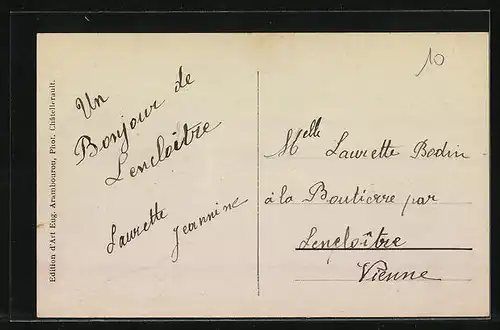 Edition d'Art Eug. Arambourou, Phot. Châtellerault.
Un
Bonjour de
Lencloître
Laurette
Jeannine
10
Melle Laurette Bodin
à la Boutierre par
Lencloître
Vienne